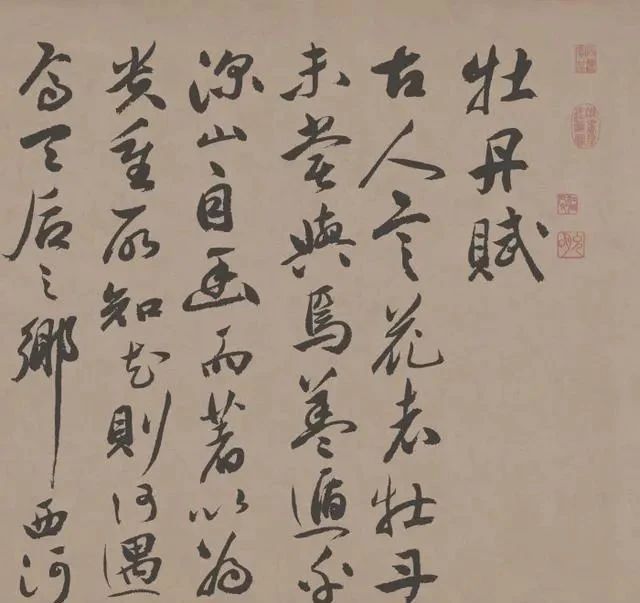 牡丹賦
古人言花者牡丹
未嘗與焉蓋遁於
深山自幽而著以為
貴重所知花則何遇
焉天后之鄉西河